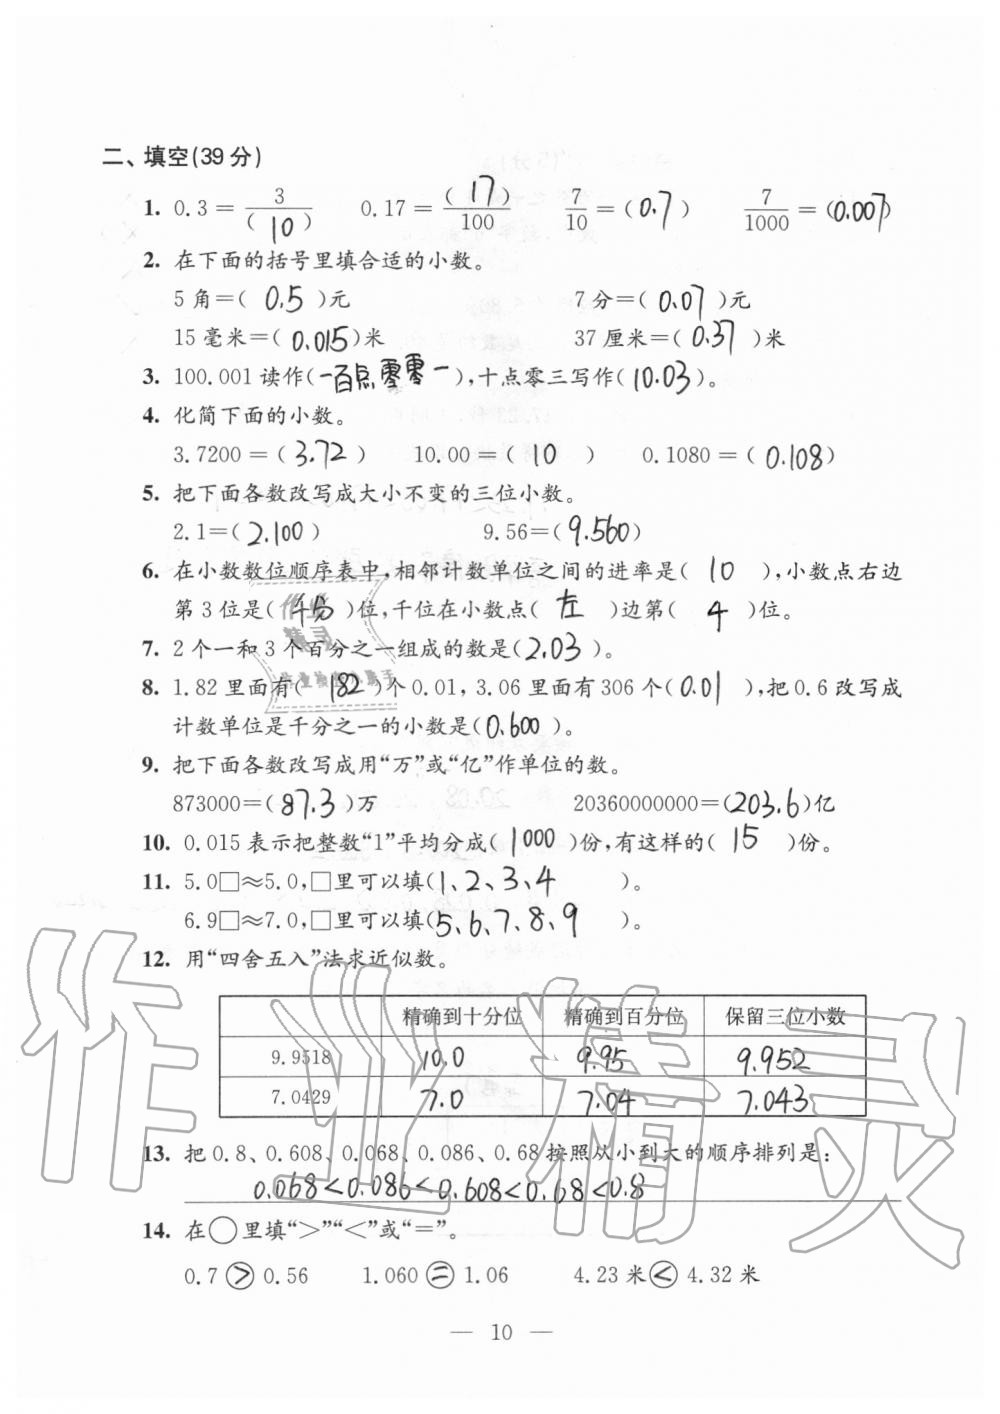 二、填空(39分)
1. 0.3=3/(10) 0.17=(17)/100 7/10=(0.7) 7/1000=(0.007)
2. 在下面的括号里填合适的小数。
5角=(0.5)元 7分=(0.07)元
15毫米=(0.015)米 37厘米=(0.37)米
3. 100.001读作(一百点零零一),十点零三写作(10.03)。
4. 化简下面的小数。
3.7200=(3.72) 10.00=(10) 0.1080=(0.108)
5. 把下面各数改写成大小不变的三位小数。
2.1=(2.100) 9.56=(9.560)
6. 在小数数位顺序表中,相邻计数单位之间的进率是(10),小数点右边
第3位是(千分)位,千位在小数点(左)边第(4)位。
7. 2个一和3个百分之一组成的数是(2.03)。
8. 1.82里面有(182)个0.01,3.06里面有306个(0.01),把0.6改写成
计数单位是千分之一的小数是(0.600)。
9. 把下面各数改写成用“万”或“亿”作单位的数。
873000=(87.3)万 20360000000=(203.6)亿
10. 0.015表示把整数“1”平均分成(1000)份,有这样的(15)份。
11. 5.0□≈5.0,□里可以填(1、2、3、4)。
6.9□≈7.0,□里可以填(5、6、7、8、9)。
12. 用“四舍五入”法求近似数。
精确到十分位 精确到百分位 保留三位小数
9.9518 10.0 9.95 9.952
7.0429 7.0 7.04 7.043
13. 把0.8、0.608、0.068、0.086、0.68按照从小到大的顺序排列是:
0.068<0.086<0.608<0.68<0.8
14. 在○里填“>”“<”或“=”。
0.7>0.56 1.060=1.06 4.23米<4.32米
— 10 —
作业精灵